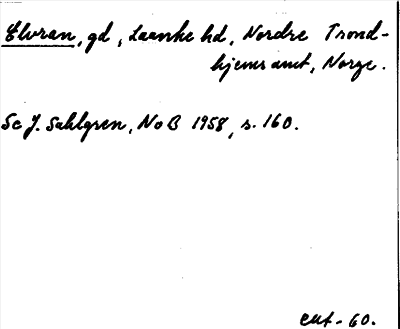 Elvran, gd, Laanke hd, Nordre Trond-
hjems amt, Norge.
Se J. Sahlgren, NoB 1958, s. 160.